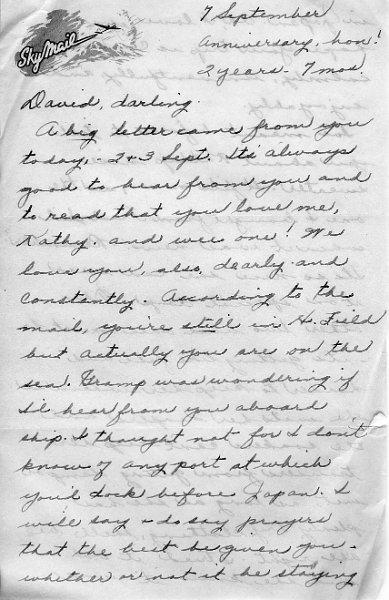 SkyMail
7 September
Anniversary, hon!
2 years - 7 mos.
David, darling.
A big letter came from you
today, - 2 + 3 Sept. It's always
good to hear from you and
to read that you love me,
Kathy. and wee one! We
love you, also, dearly and
constantly. According to the
mail, you're still in H. Field
but actually you are on the
sea. Gramp was wondering if
I'd hear from you aboard
ship. I thought not for I don't
know of any port at which
you'd dock before Japan. I
will say + do say prayers
that the best be given you -
whether or not it be staying